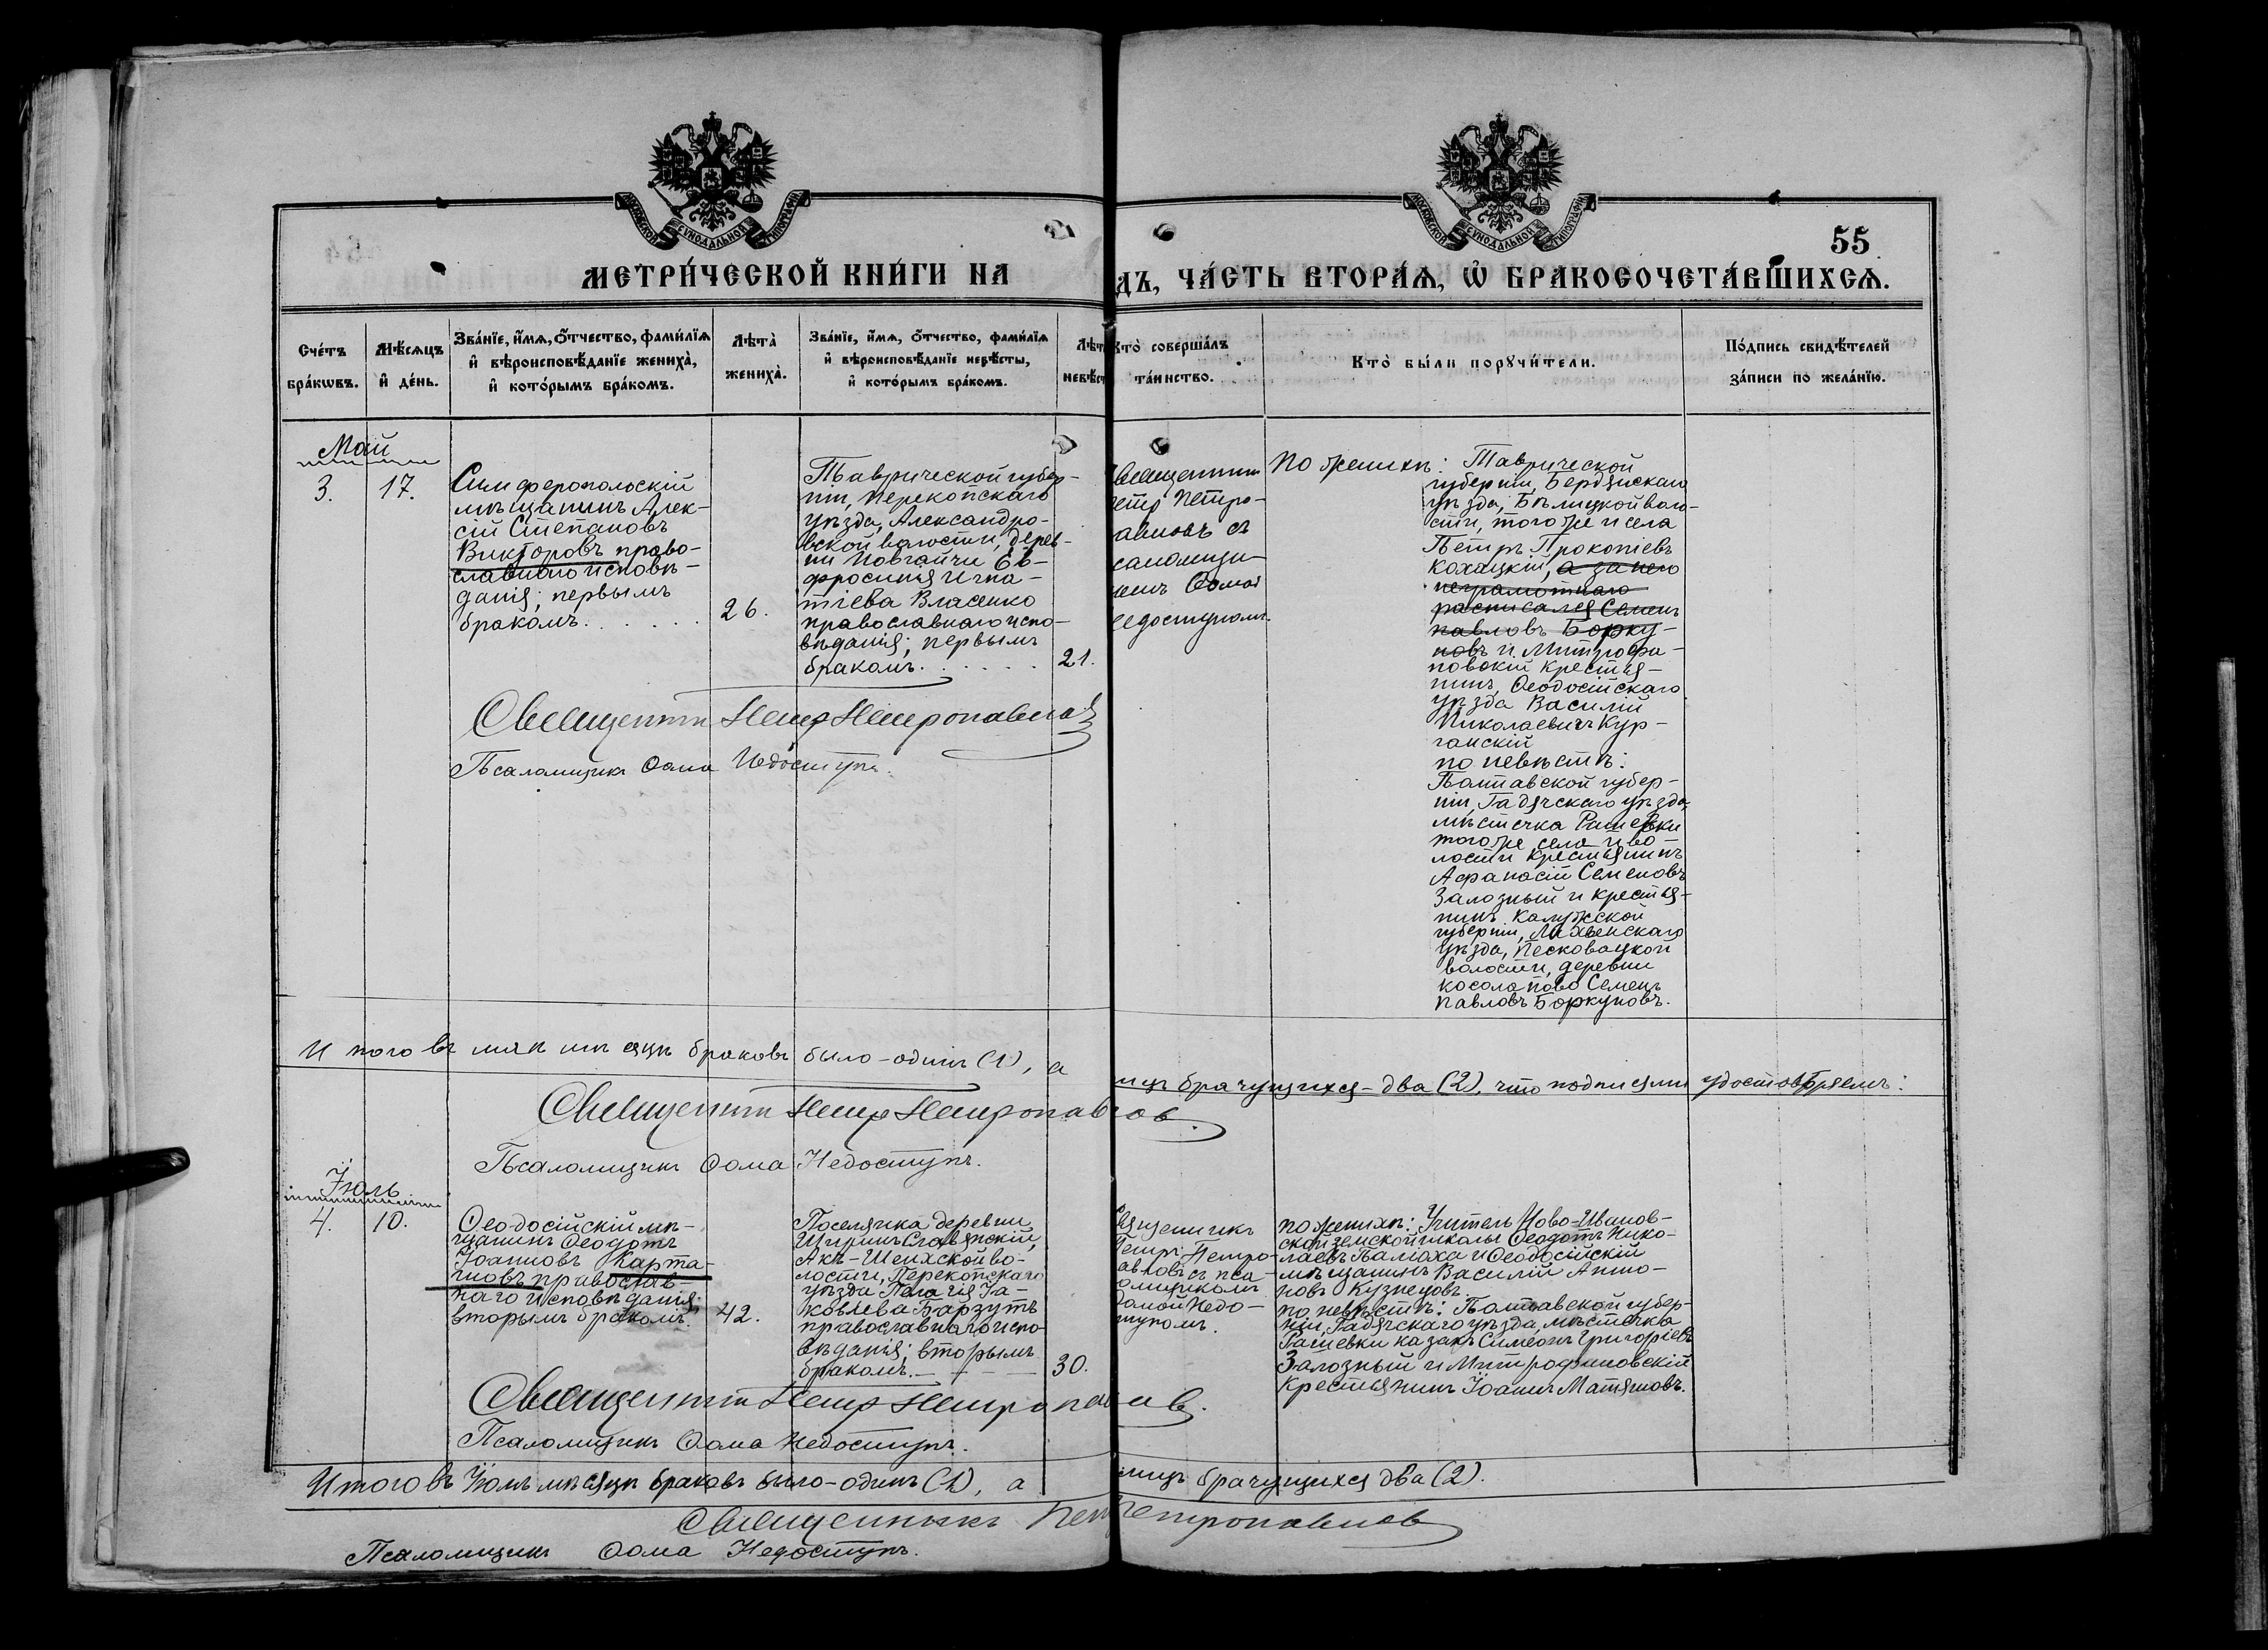 МОСКОВСКОЙ СѴНОДАЛЬНОЙ ТИПОГРАФІИ
МОСКОВСКОЙ СѴНОДАЛЬНОЙ ТИПОГРАФІИ
55
МЕТРИ́ЧЕСКОЙ КНИ́ГИ НА
ДЪ, ЧА́СТЬ ВТОРА́Ѧ, Ѽ БРАКОСОЧЕТА́ВШИХСѦ.
Сче́тъ бра́кѡвъ.
Мѣ́сѧцъ и҆ де́нь.
Зва́нїе, и҆́мѧ, ѻ҆́тчество, фами́лїѧ
и҆ вѣроисповѣ́данїе жениха̀,
и҆ кото́рымъ бра́комъ.
Лѣта̀ жениха̀.
Зва́нїе, и҆́мѧ, ѻ҆́тчество, фами́лїѧ
и҆ вѣроисповѣ́данїе невѣ́сты,
и҆ кото́рымъ бра́комъ.
Лѣт
невѣст
Кто̀ соверша́лъ
та́инство.
Кто̀ бы́ли порꙋчи́тели.
По́дпись свидѣ́телей
за́писи по жела́нїю.
Май
3.
17.
Симферопольскій
мѣщанинъ Алек-
сій Степановъ
Викторовъ право-
славнаго исповѣ-
данія; первымъ
бракомъ.
26.
Таврической губер-
ніи, Перекопскаго
уѣзда, Александро-
вской волости, дерев-
ни Новгайчи Ев-
фросинія Игна-
тіева Власенко
православнаго испо-
вѣданія; первымъ
бракомъ.
21.
етр Петро-
авловъ съ
саломщи-
комъ Ѳомой
едоступомъ.
По женихѣ: Таврической
губерніи, Бердянскаго
уѣзда, Бѣлицкой воло-
сти, того же и села
Петръ Прокопіевъ
Кохацкій, а за него
неграмотнаго
росписался Семенъ
Павловъ Борку-
новъ и Митрофа-
новскій крестья-
нинъ, Ѳеодосійскаго
уѣзда Василій
Николаевичъ Кур-
ганскій
по невѣстѣ:
Полтавской губер-
ніи, Гадячскаго уѣзда,
мѣстечка Рашевки
того же села и во-
лости крестьянинъ
Афанасій Семеновъ
Залозный и крестья-
нинъ Калужской
губерніи,
уѣзда, Песковацкой
волости, деревни
Косолапово Семенъ
Павловъ Боркуновъ.
Священникъ Петр Петропавлов
Псаломщикъ Ѳома Недоступъ.
Итого въ маѣ мѣсяцѣ браковъ было – одинъ (1), а
лицъ брачущихся – два (2), что подписями удостовѣряемъ:
Священникъ Петр Петропавлов
Псаломщикъ Ѳома Недоступъ.
Іюль
4.
10.
Ѳеодосійскій мѣ-
щанинъ Ѳеодотъ
Іоанновъ Карта-
шовъ православ-
наго исповѣданія;
вторымъ бракомъ.
42.
Поселянка деревни
Ширинъ Славянскій,
Акъ-Шеихской во-
лости, Перекопскаго
уѣзда Пелагія Іа-
ковлева Барзутъ
православнаго испо-
вѣданія; вторымъ
бракомъ.
30.
вященникъ
Петръ Петро-
авловъ съ пса-
омщикомъ
Ѳомой Недо-
тупомъ.
по женихѣ: Учитель Ново-Иванов-
ской земской школы Ѳеодотъ Нико-
лаевъ Балюха и Ѳеодосійскій
мѣщанинъ Василій Анто-
новъ Кузнецовъ.
по невѣстѣ: Полтавской губер-
ніи, Гадячскаго уѣзда, мѣстечка
Рашевки казакъ Симеонъ Григоріевъ
Залозный и Митрофановскій
крестьянинъ Іоаннъ Матяшовъ.
Священникъ Петр Петропавлов.
Псаломщикъ Ѳома Недоступъ.
Итого въ Іюлѣ мѣсяцѣ браковъ было – одинъ (1), а
лицъ брачущихся два (2).
Священникъ Петр Петропавлов
Псаломщикъ Ѳома Недоступъ.